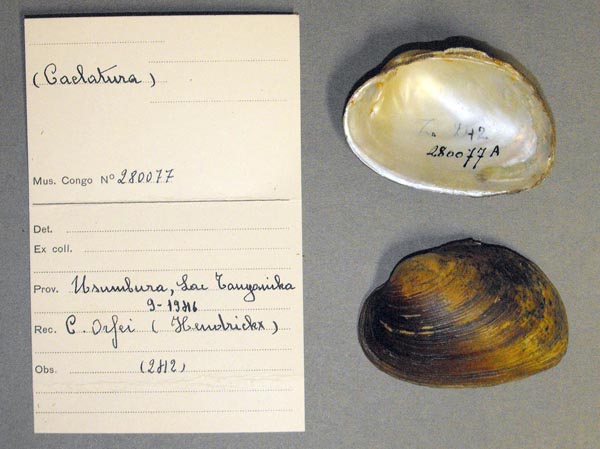 (Caelatura)
Mus. Congo Nº 280077
Det.
Ex coll.
Prov. Usumbura, Lac Tanganika
9-1946
Rec. C. Orfei (Hendrickx)
Obs. (242)
Z. 242
280077 A